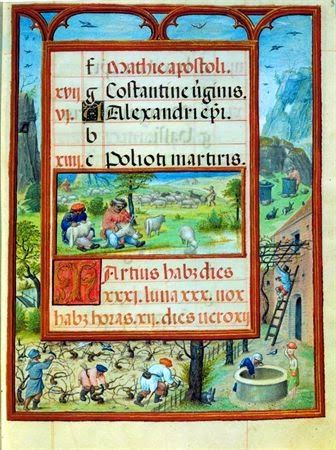 f Mathie apostoli.
xvij g Costantine ũginis.
vj. A Alexandri ep̃i.
b
xiiij c Polioti martiris.
Martius habꝫ dies
xxxi. luna xxx. nox
habꝫ horas .xij. dies uero xij